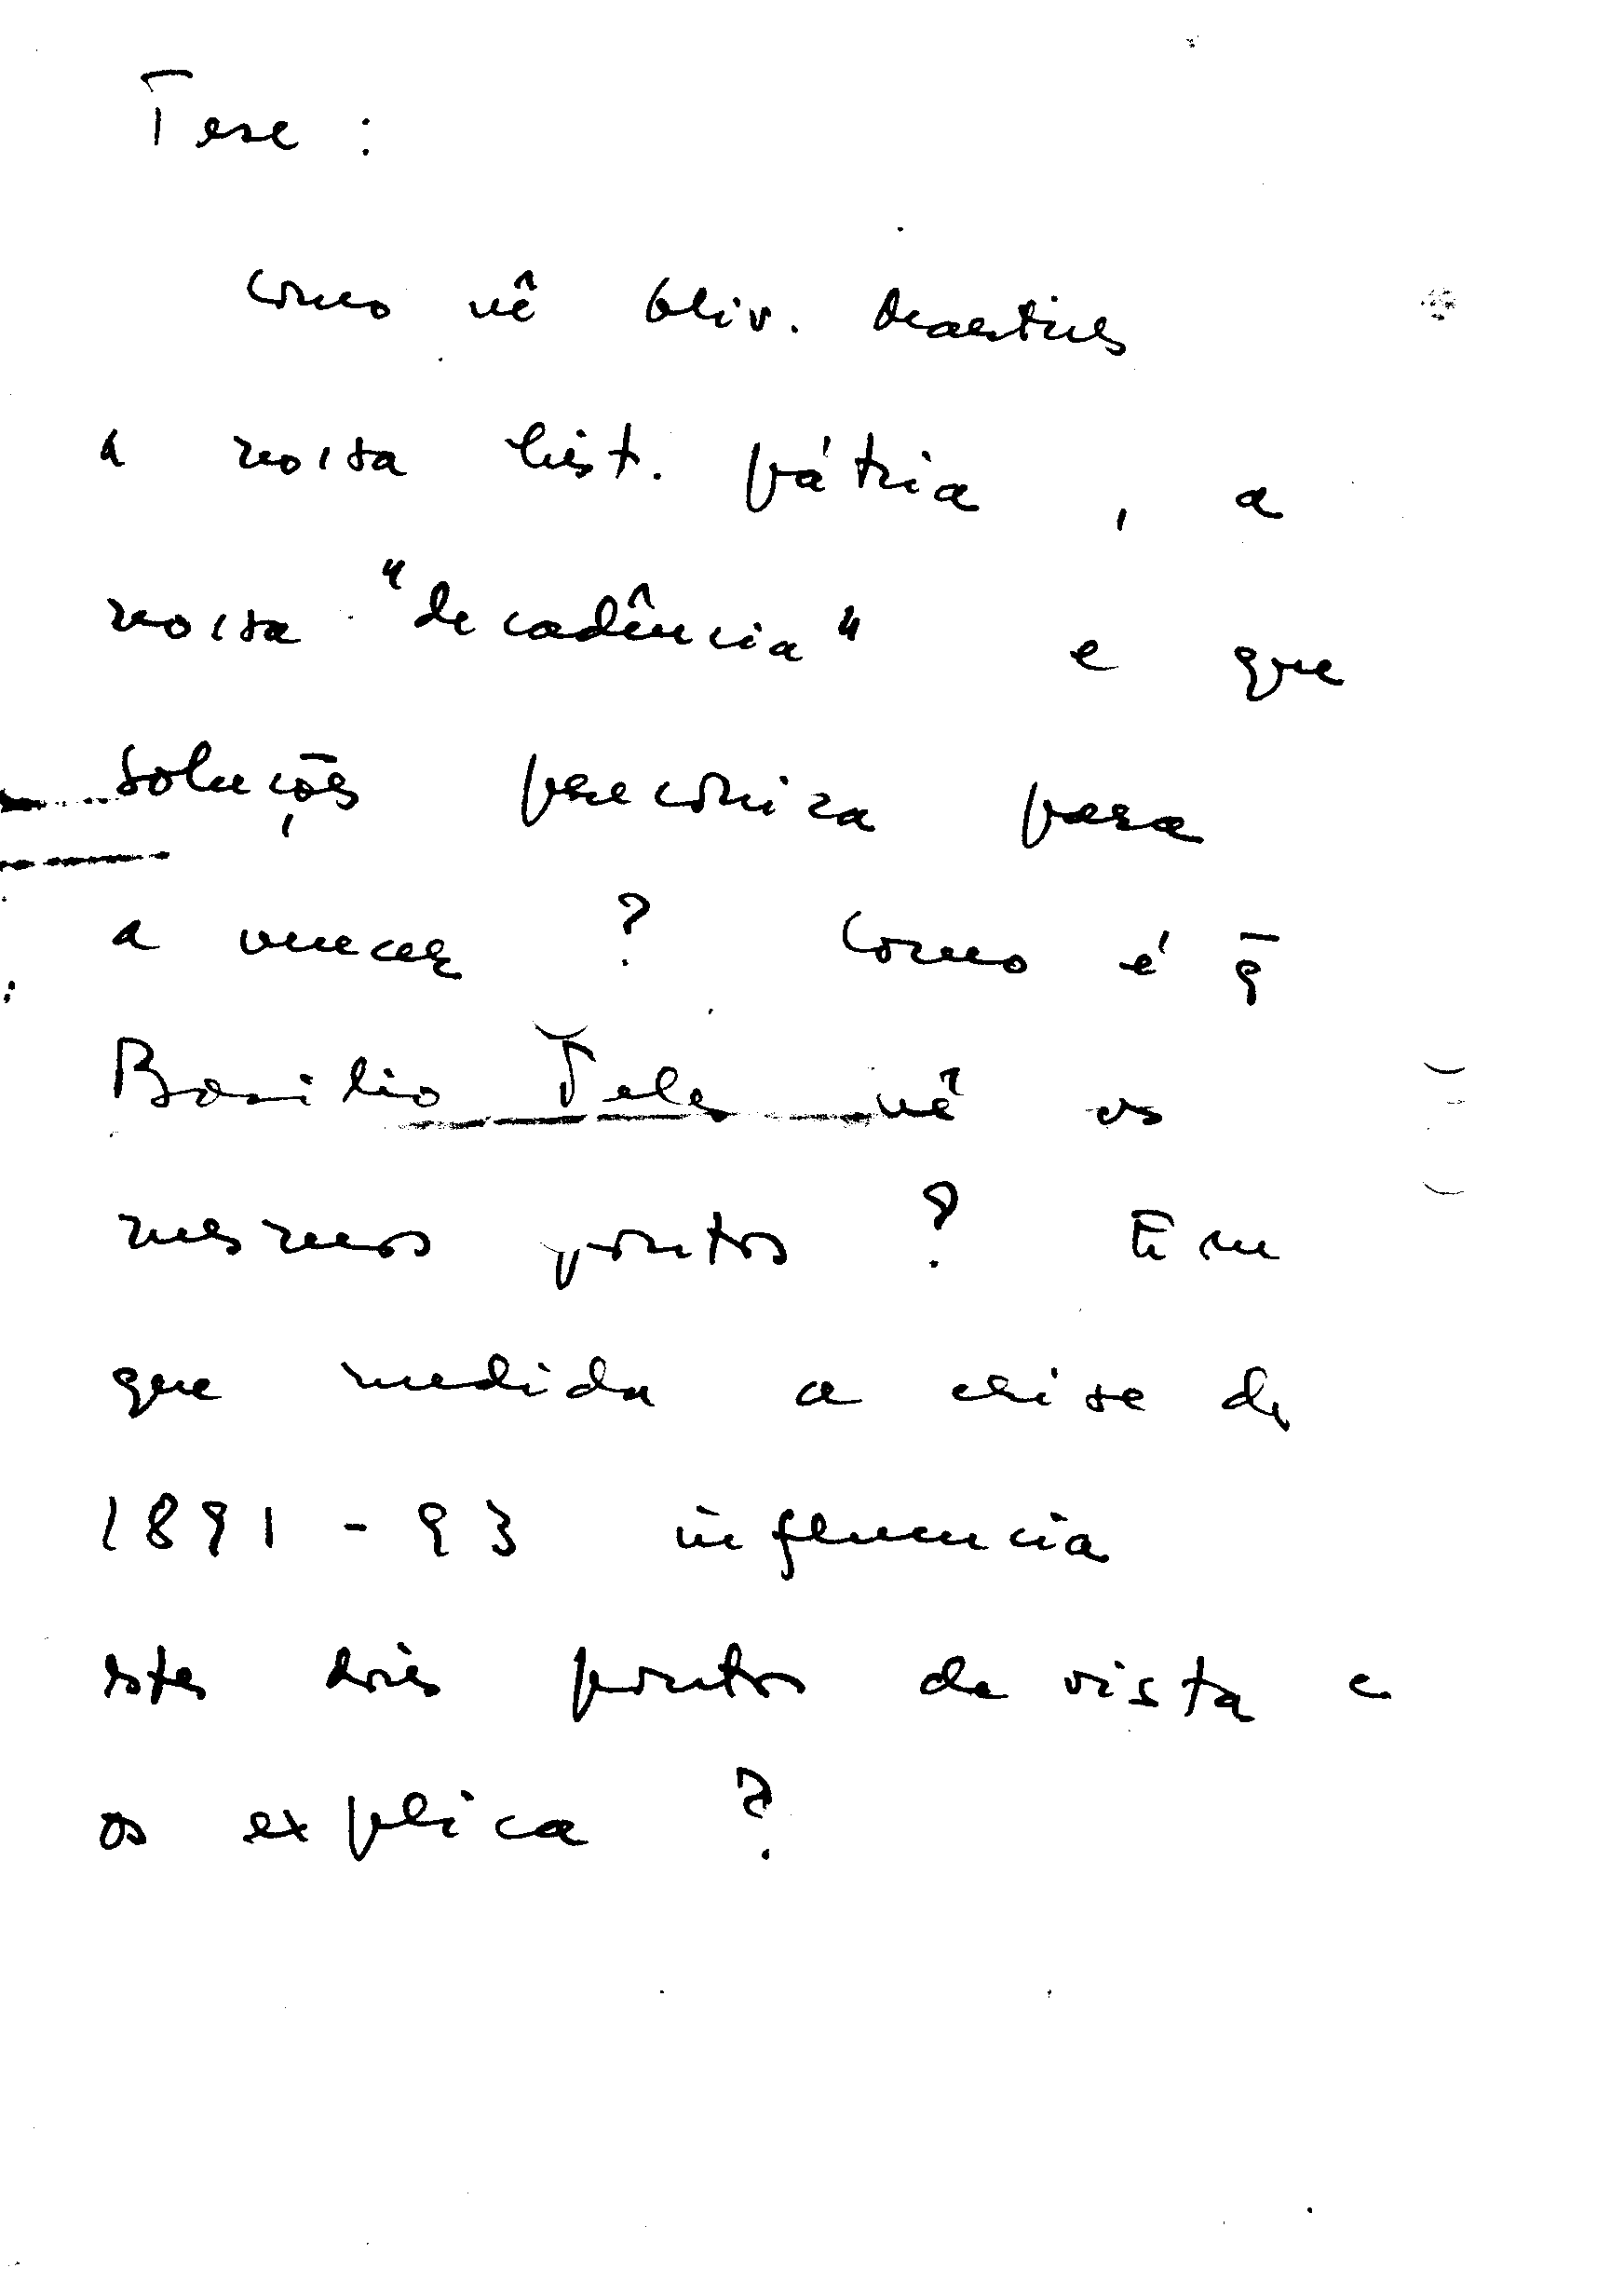 Tese :
Como vê Oliv. Martins
a nossa hist. pátria , a
nossa "decadência" e que
soluções preconiza para
a vencer ? Como é q̄
Basílio Teles vê os
mesmos pontos ? Em
que medida a crise de
1891 - 93 influencia
estes dois pontos de vista e
os explica ?